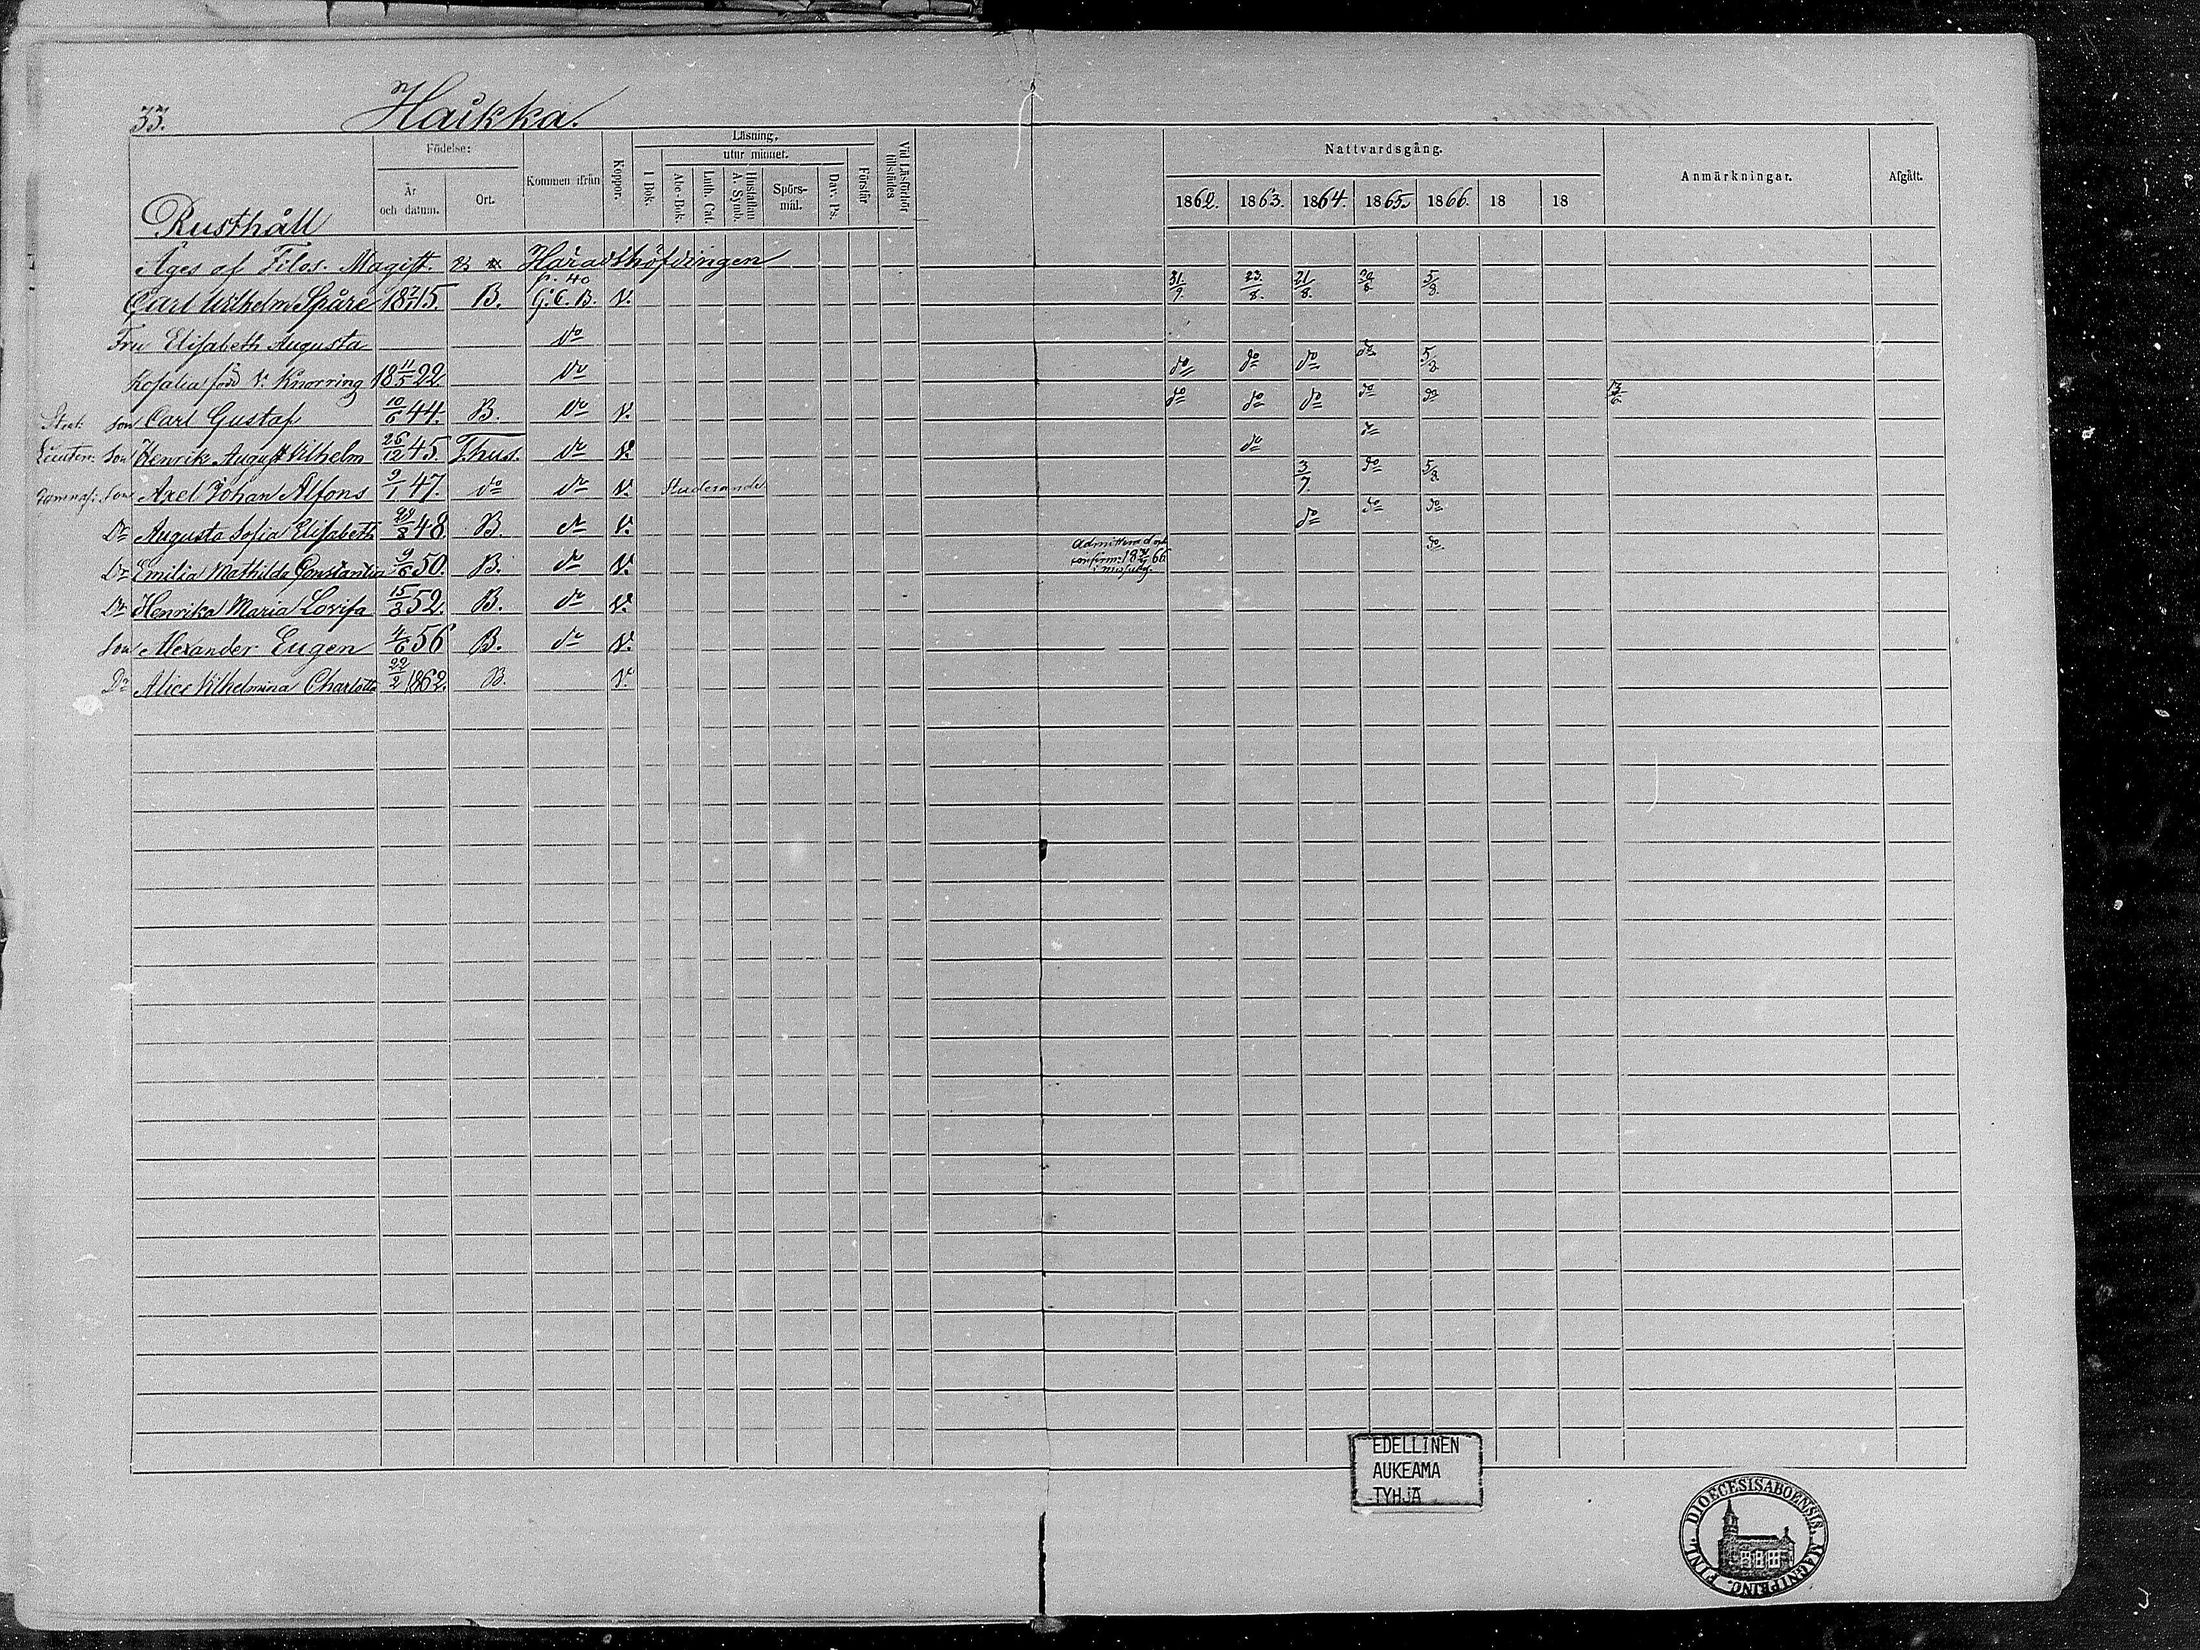 33. Haikka.
Rusthåll
Födelse:
År och datum.
Ort.
Kommen ifrån
Koppor.
Läsning,
utur minnet.
I Bok.
Abc-Bok.
Luth. Cat.
Hustaflan A. Symb.
Spörs-mål.
Dav. Ps.
Förstår
Vid Läsförhör tillstädes
Nattvardsgång.
1862. 1863. 1864. 1865. 1866. 18 18
Anmärkningar.
Afgått.
Äges af Filos. Magist. Häradshöfdingen
p. 40
Carl Wilhelm Spåre 1815. B. G. C. B. v. 31/9. 23/8. 21/8. 5/8.
Fru Elisabeth Augusta do
Rosalia född v. Knorring 18 11/5 22. do do do do do 5/8
Stud: Son Carl Gustaf 10/6 44. B. do v. do do do do do
Lieuten: Son Henrik August Vilhelm 26/12 45. Thus. do v. do do
Son Axel Johan Alfons 9/1 47. do do v. Studerande 3/7. do 5/8
Dr Augusta Sofia Elisabeth 8 48 B. do v. do do do
Dr Emilia Mathilda Constantia 9/6 50. B. do v. Admitterad och confirm. 66 do
Dr Henrika Maria Lovisa 15/8 52. B. do v.
Son Alexander Eugen 4/6 56 B. do v.
Dr Alice Vilhelmina Charlotta 22/2 1862. B. v.
EDELLINEN
AUKEAMA
TYHJÄ
FINL. DIOECESIS ABOENSIS. MAGNI PRINC.